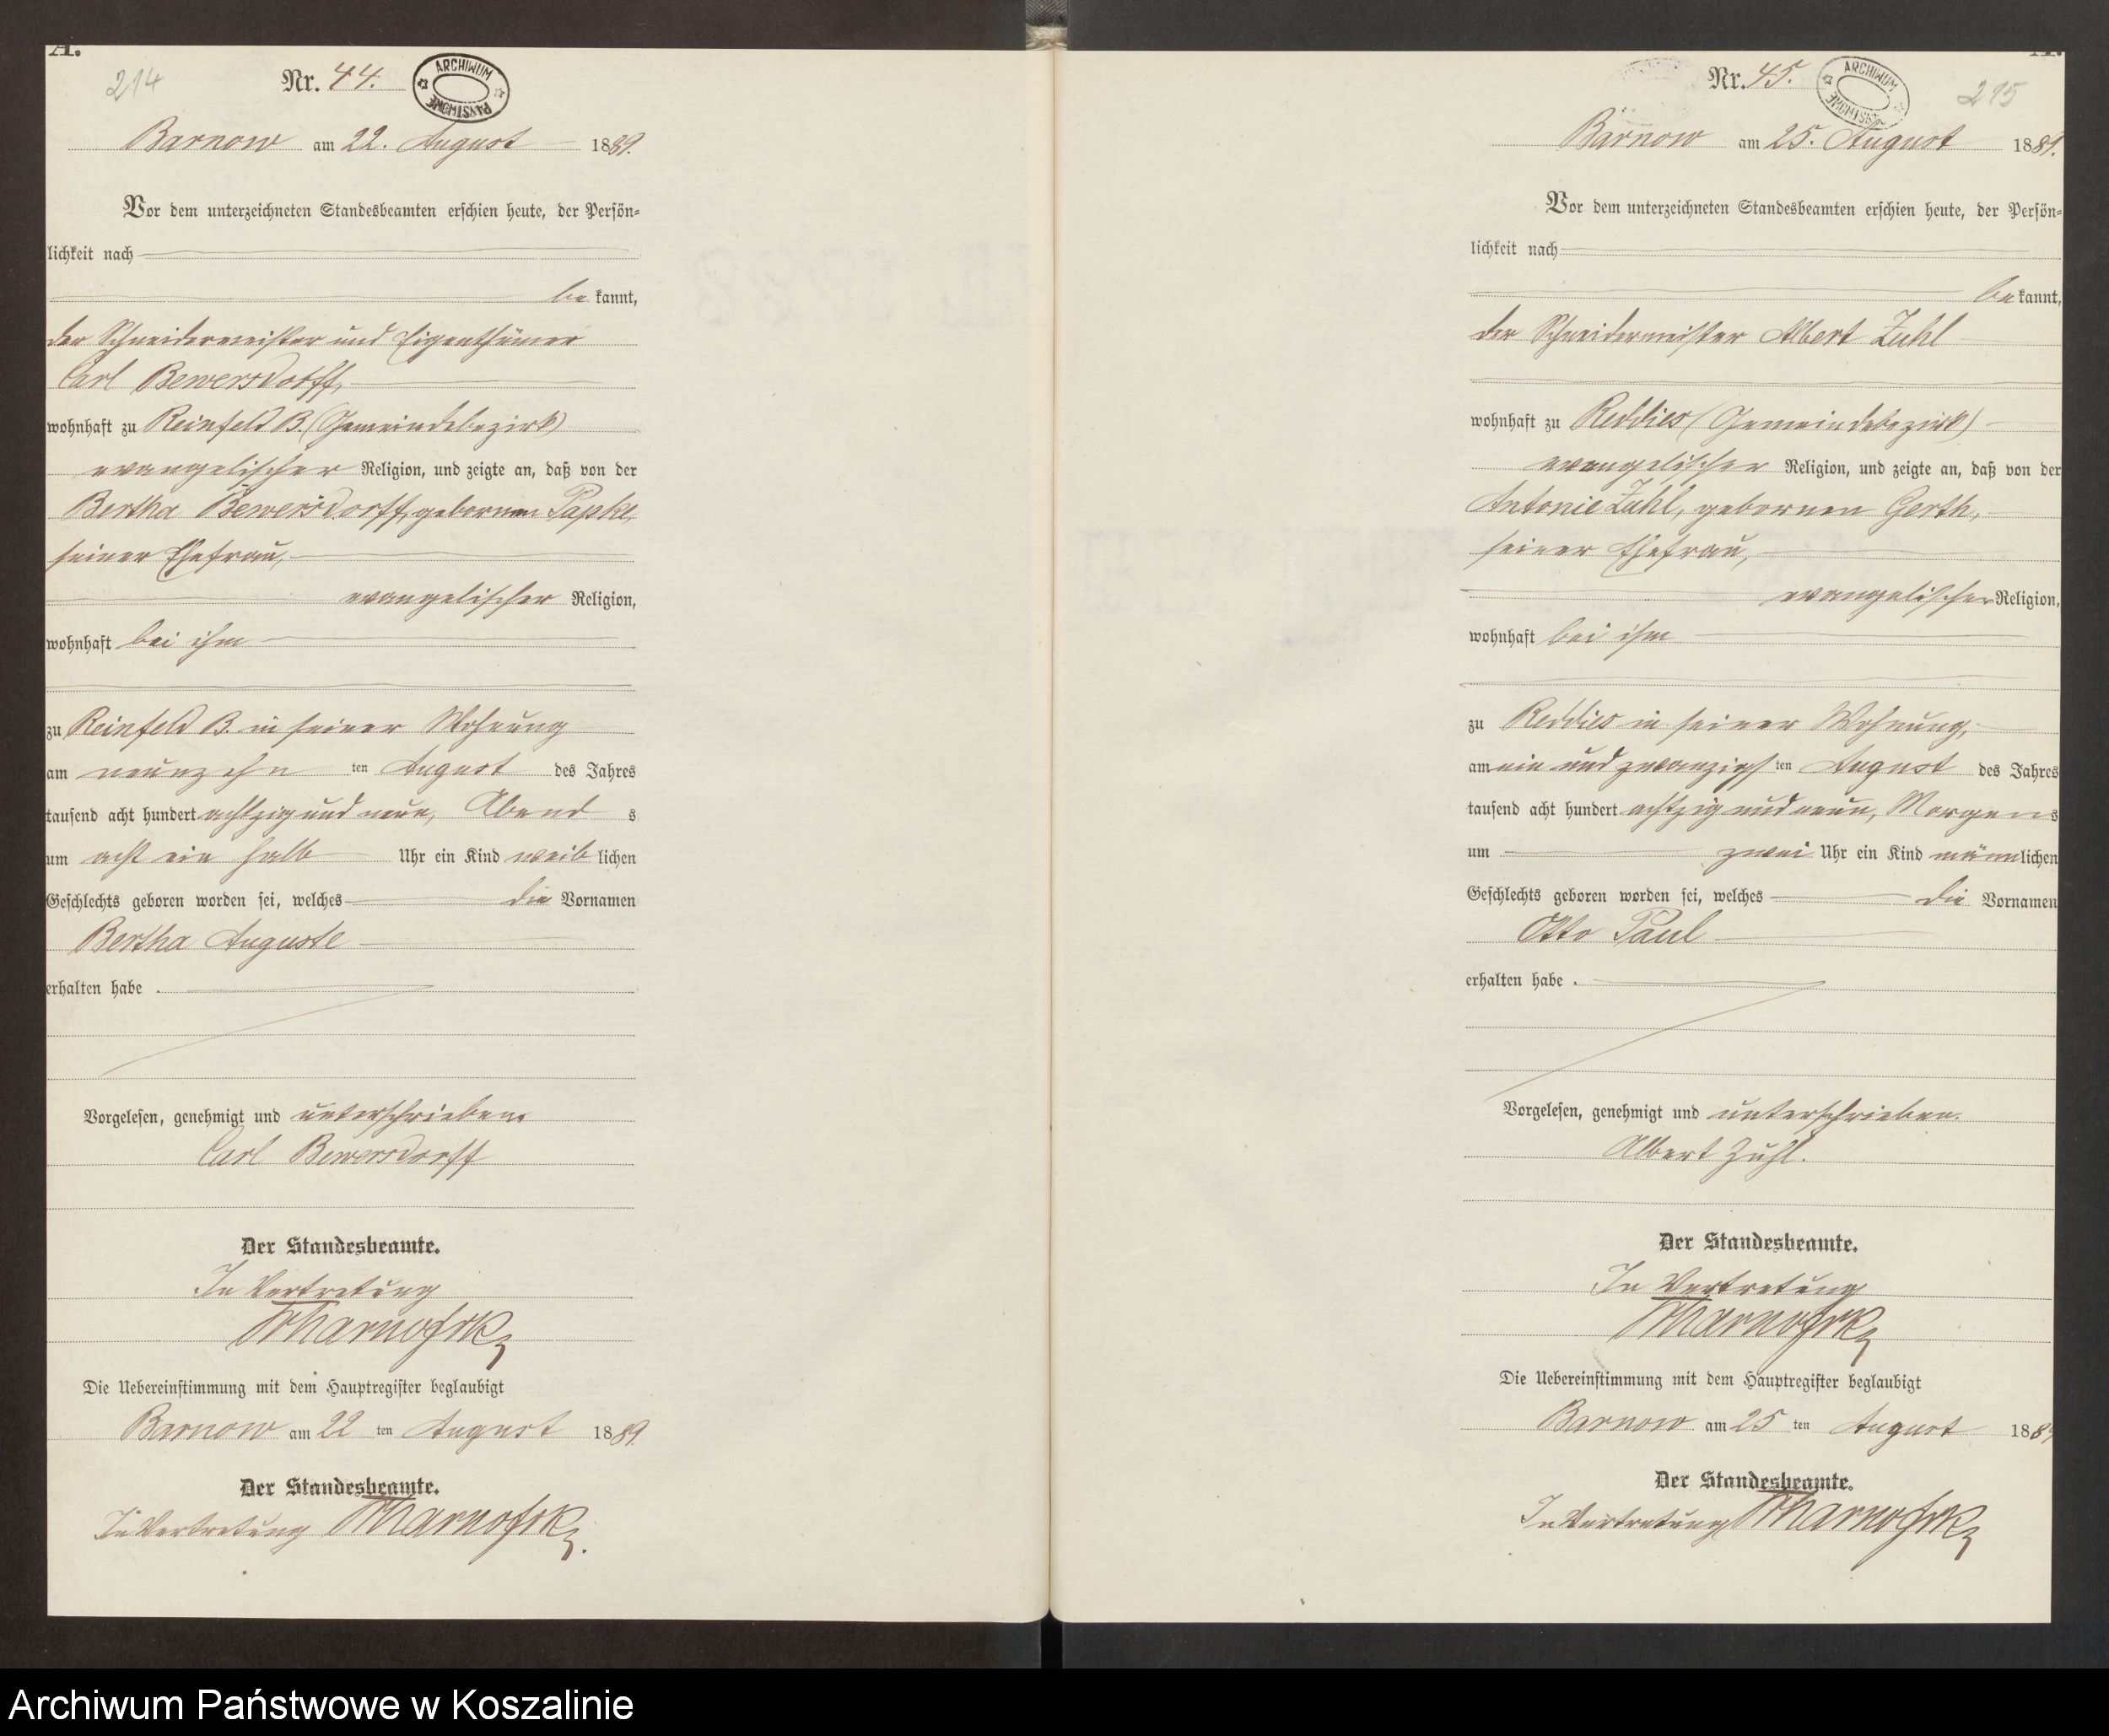 A.
214
Nr. 44.
ARCHIWUM PAŃSTWOWE
Barnow am 22. August 1889.
Vor dem unterzeichneten Standesbeamten erschien heute, der Persön=
lichkeit nach
bekannt,
der Schneidermeister und Eigenthümer
Carl Bewersdorff,
wohnhaft zu Reinfeld B. (Gemeindebezirk)
evangelischer Religion, und zeigte an, daß von der
Bertha Bewersdorff, gebornen Papke,
seiner Ehefrau,
evangelischer Religion,
wohnhaft bei ihm
zu Reinfeld B. in seiner Wohnung
am neunzehn ten August des Jahres
tausend acht hundert achtzig und neun, Abend s
um acht ein halb Uhr ein Kind weiblichen
Geschlechts geboren worden sei, welches die Vornamen
Bertha Auguste
erhalten habe.
Vorgelesen, genehmigt und unterschrieben.
Carl Bewersdorff
Der Standesbeamte.
In Vertretung
Die Uebereinstimmung mit dem Hauptregister beglaubigt
Barnow am 22 ten August 1889.
Der Standesbeamte.
In Vertretung
A.
Nr. 45.
ARCHIWUM PAŃSTWOWE
215
Barnow am 25. August 1889.
Vor dem unterzeichneten Standesbeamten erschien heute, der Persön=
lichkeit nach
bekannt,
der Schneidermeister Albert Zuhl
wohnhaft zu Reddies (Gemeindebezirk)
evangelischer Religion, und zeigte an, daß von der
Antonie Zuhl, gebornen Gerth,
seiner Ehefrau,
evangelischer Religion,
wohnhaft bei ihm
zu Reddies in seiner Wohnung,
am ein und zwanzigsten August des Jahres
tausend acht hundert achtzig und neun, Morgens
um zwei Uhr ein Kind männlichen
Geschlechts geboren worden sei, welches die Vornamen
Otto Paul
erhalten habe.
Vorgelesen, genehmigt und unterschrieben.
Albert Zuhl.
Der Standesbeamte.
In Vertretung
Die Uebereinstimmung mit dem Hauptregister beglaubigt
Barnow am 25 ten August 1889
Der Standesbeamte.
In Vertretung
Archiwum Państwowe w Koszalinie